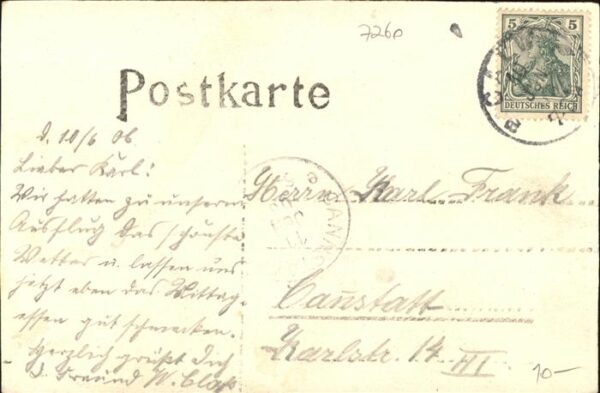 7260
5 5
DEUTSCHES REICH
Postkarte
d. 10/6 06
Lieber Karl!
Wir hatten zu unserm
Ausflug das schönste
Wetter u. lassen uns
jetzt eben das Mittag-
essen gut schmecken.
Herzlich grüßt Dich
D. Freund W. Claß
Herrn Karl Frank
Canstatt
Karlstr. 14 III
10-